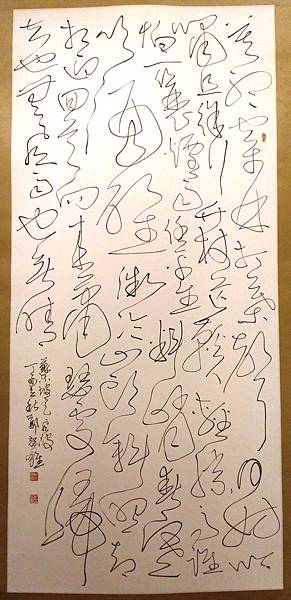 莫聽穿林打葉聲何妨吟
嘯且徐行竹杖芒鞋輕勝馬誰
怕一蓑煙雨任平生料峭春風
吹酒醒微冷山頭斜照卻
相迎回首向來蕭瑟處歸
去也無風雨也無晴
蘇東坡定風波
丁酉秋鄭雄